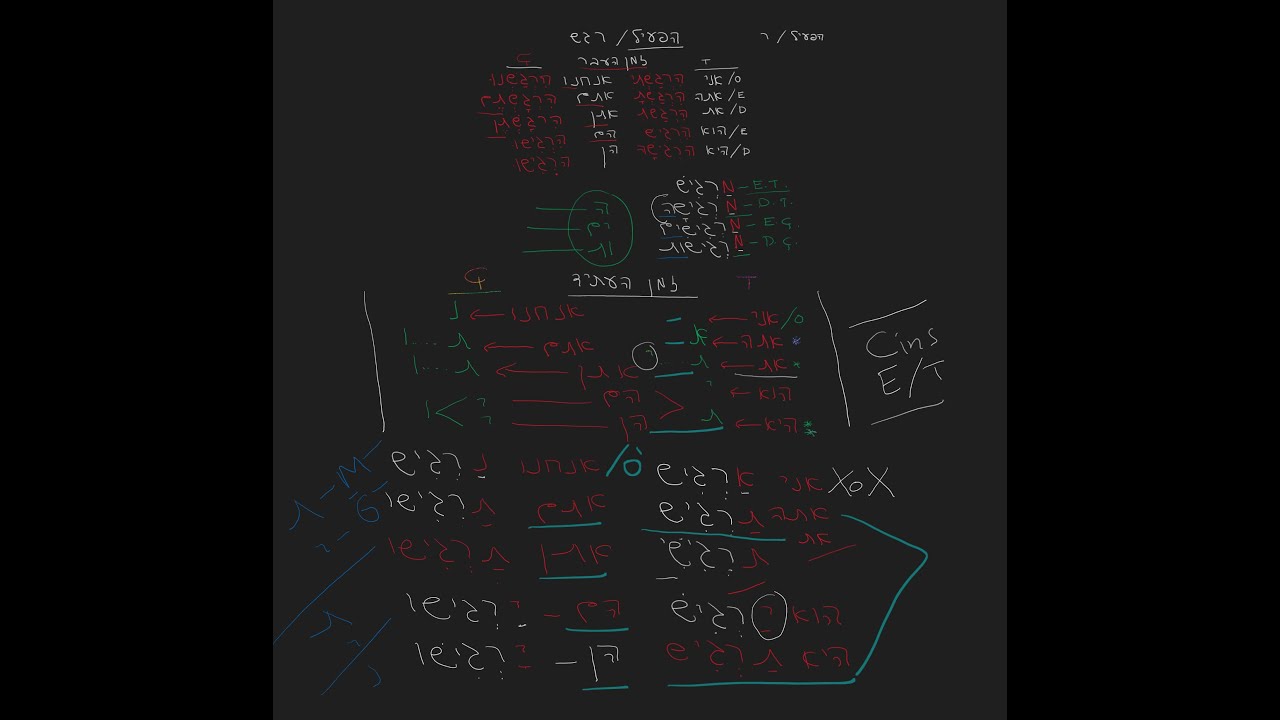 הפעיל/ ר
הפעיל/ רגש
T זמן העבר Ç
O/ אני הִרגַשתי אנחנו הִרגַשנו
E/ אתה הִרגַשתָ אתם הִרגַשתֶם
D/ את הִרגַשת אתן הִרגַשתֶן
E/ הוא הִרגִיש הם הִרגִישו
D/ היא הִרגִישָה הן הִרגִישו
מַרְגִישׁ - E.T.
מַרְגִישָה - D.T.
מַרְגִישִים - E.Ç.
מַרְגִישוֹת - D.Ç.
ה
ים
ות
T זמן העתיד Ç
O/ אני ← א אנחנו ← נ
* אתה ← ת אתם ← ת....ו
* את ← ת....י אתן ← ת....ו
הוא ← י הם י
* היא ← ת הן י > ו
Cins
E/T
XOX אני אַרְגִיש /O אנחנו נַרְגִיש
אתה תַרְגִיש אתם תַרְגִישו
את תַרְגִישִי אתן תַרְגִישו
הוא יַרְגִישׁ הם - יַרְגִישו
היא תַרְגִיש הן - יַרְגִישו
ת - M
י - G
ת
י
נ